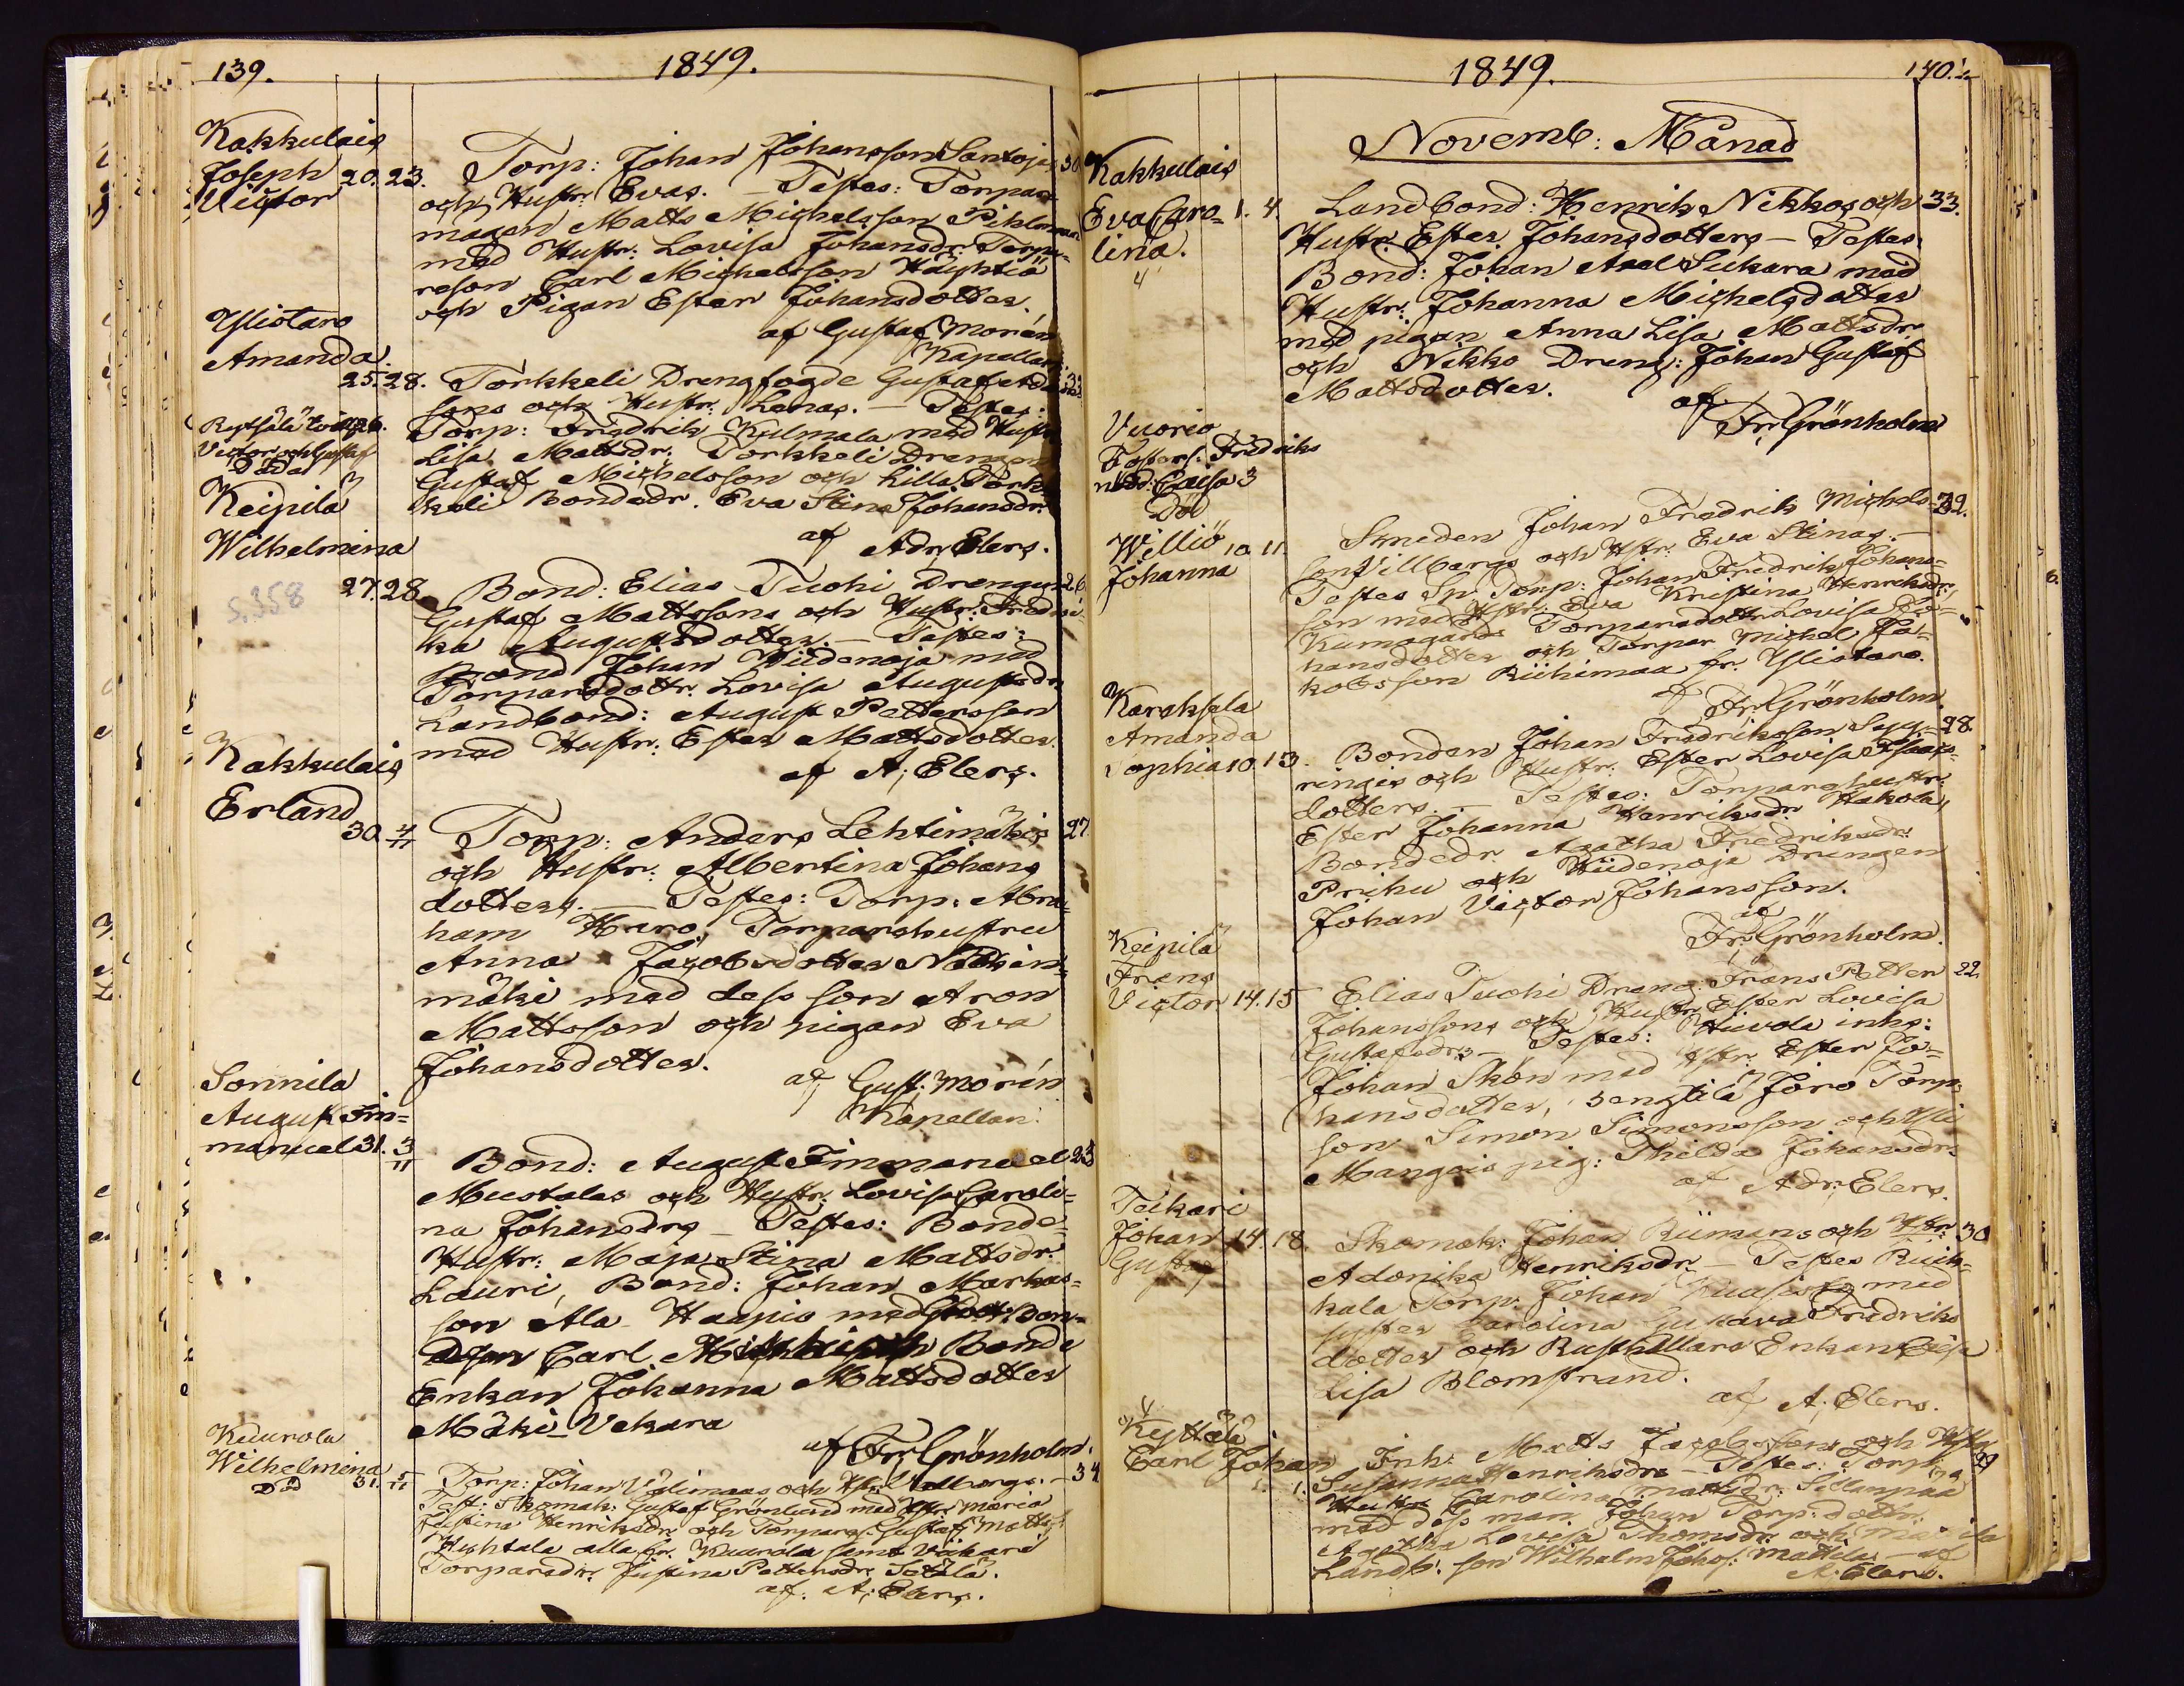 139.
1849.
Kakkulais
Joseph 20. 23.
Victor
Torp: Johan Johansson Santoja 30
och Hustr: Evas. Testes: Torpare
magen Matts Michelsson
med Hustr: Lovisa Johansdr. Torpa-
reson Carl Michelsson
och Pigan Ester Johansdotter.
af Gustaf Morén
Kapellan.
Ylistaro
Amanda.
25. 28.
Torkkeli Drengfogde Gustaf
sons och Hustr: Lenas. — Testes:
Torp: Fredrik Kulmala med Hustr
Lisa Mattsdr. Torkkeli Drengen
Gustaf Michelsson och Lilla Tork-
keli Bondedr. Eva Stina Johansdr.
af Adr. Elers.
Victor och Gustaf
Döda
Keipilä
Wilhelmina
27. 28.
S. 358
Bond: Elias Tuohi Drengen 26
Gustaf Mattssons och Hustr: Fredri-
ka Augustdotter. — Testes:
Bond Johan Hiidenoja med
Torparedottr. Lovisa Augustsdr.
Landbond: August Pettersson
med Hustr: Ester Mattsdotter.
af A. Elers.
Kakkulais
Erland
30. 4/11
Torp: Anders Lehtimäkis 27.
och Hustr: Albertina Johans
dotters. — Testes: Torp: Abra-
ham Haro, Torparehustru
Anna Jacobsdotter
mäki med dess son Aron
Mattsson och pigan Eva
Johansdotter.
af Gust. Morén
Kapellan.
Sonnila
August Im-
manuel 31. 3/11
Bond: August Immanuel 23
Mustalas och Hustr: Lovisa Caroli-
na Johansdrs — Testes: Bonde-
Hustr: Maja Stina Mattsdr.
Lauri, Bond: Johan Markus-
son Ala-Haapio med
Carl Bonde
Enkan Johanna Mattsdotter
Mäki-Vakara
af Fr. Grönholm.
Keurola
Wilhelmina
Död 31. 5/11
Torp: Johan Välimaas och Hstr. Vallborgs. — 34
Test: Skomak: Gustaf Grönlund med Hstr Maria
Justina Henriksdr och Torpares. Gustaf Mattss.
Huhtala alla fr. Keurola samt Väkäri
Torparedr. Justina Pettersdr.
af: A. Elers.
1849.
140.
Novemb: Månad
Kakkulais
Eva Caro- 1. 4.
lina.
4
Landbond: Henrik Nikkos och 33.
Hustr. Ester Johansdotters — Testes.
Bond: Johan Axel Sukara med
Hustr: Johanna Michelsdotter
med pigan Anna Lisa Mattsdr
och Nikko Dreng: Johan Gustaf
Mattsdotter.
af
Fr. Grönholm
Vuorio
Fosters. Fredriks
nödd. Caisa 3
Död
Williö 10. 11.
Johanna
Smeden Johan Fredrik Michels- 32.
son Villbergs och Hstr. Eva Stinas. —
Testes Sp. Torp: Johan Fredrik Johans-
son med Hstr. Eva Kristina Henriksdr,
Kumogårds Torparedottr Lovisa Jo-
hansdotter och Torpar Michel Ja-
kobsson Riihimaa fr. Ylistaro.
af Fr. Grönholm.
Karhsala
Amanda
Sophia 10. 13.
Bonden Johan Fredriksson Sepp- 28.
ringis och Hustr: Ester Lovisa Isaacs
dotters. — Testes: Torparehustr.
Ester Johanna Henriksdr Hakola,
Bondedr. Agatha Fredriksdr
Prihu och Hiidenoja Drengen
Johan Victor Johansson.
af
Fr. Grönholm.
Keipilä
Frans
Victor 14. 15
Elias Tuohi Dreng: Frans Petter 22.
Johanssons och Hustr Ester Lovisa
Gustafsdrs — Testes: Hiivola inhs:
Johan Skön med Hstr. Ester Jo-
hansdotter, Jaro Torp:
son Simon Simonsson och Yli
Mangois pig: Thilda Johansdr.
af Adr. Elers.
Teikari
Johan 14. 18.
Gustaf
Skomak: Johan Riimans och Hstr: 30
Adonika Henriksdr. — Testes
kala Torp: Johan med
syster Carolina Gustava Fredriks
dotter och Rusthållars Enkan Caisa
Lisa Blomstrand.
af A. Elers.
4
Kyttälä
Carl Johan
Inh: Matts Jacobssons och Hstr 29
Susanna Henriksdrs — Testes: Torp:
Hustr Carolina Mattsdr. Sillanpää
med dess man Johan Torp. dottr.
Agatha Lovisa Thomsdr. och
Landb: son Wilhelm Johs: Mattila — af
A. Elers.